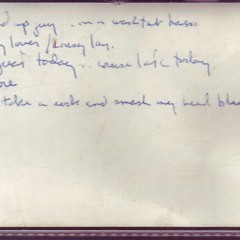 d up guy... on a washtub bass
lover / lousy lay.
today... cause late today.
ore
take a rock and smash my head